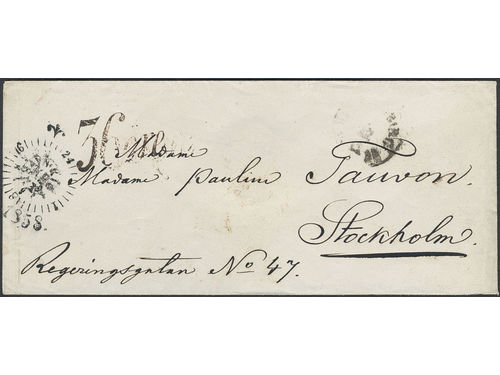 Madame
Madame Pauline Tauvon.
Stockholm.
Regeringsgatan No 47.
1858.